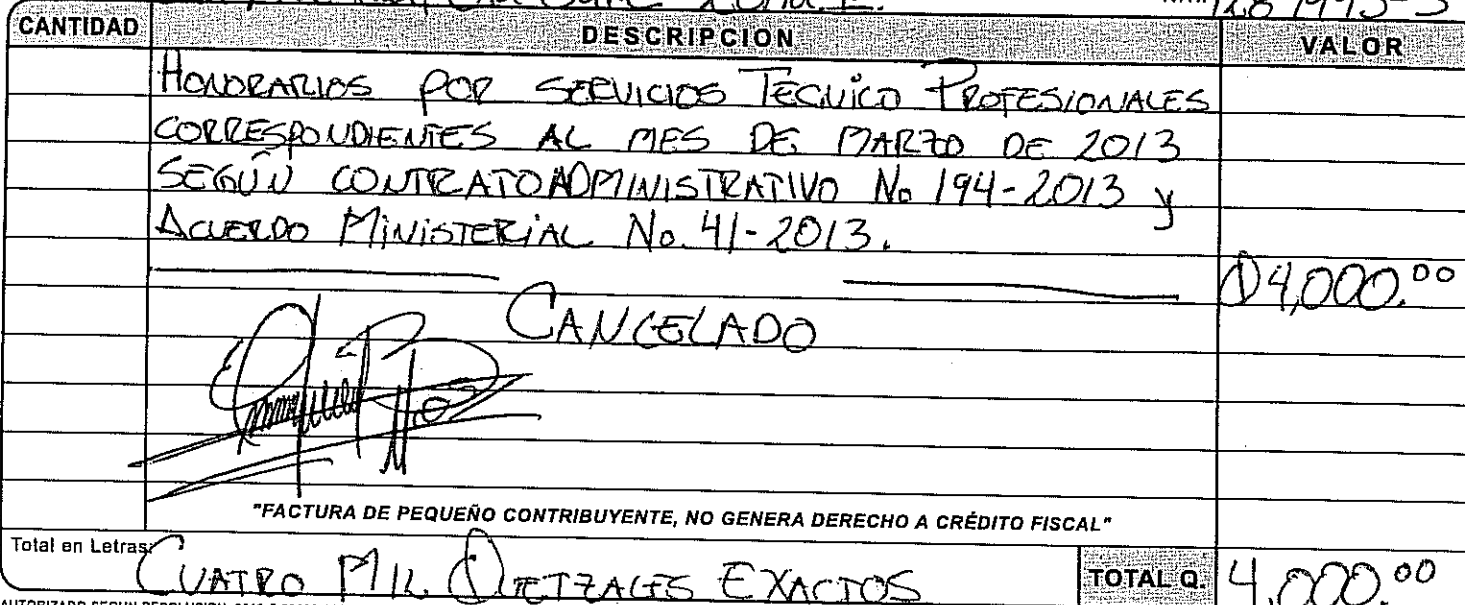 CANTIDAD DESCRIPCION VALOR
HONORARIOS POR SERVICIOS TECNICO PROFESIONALES
CORRESPONDIENTES AL MES DE MARZO DE 2013
SEGÚN CONTRATO ADMINISTRATIVO No 194-2013 y
ACUERDO MINISTERIAL No. 41-2013.
Q4,000.00
CANCELADO
"FACTURA DE PEQUEÑO CONTRIBUYENTE, NO GENERA DERECHO A CRÉDITO FISCAL"
Total en Letras: CUATRO MIL QUETZALES EXACTOS TOTAL Q. 4,000.00